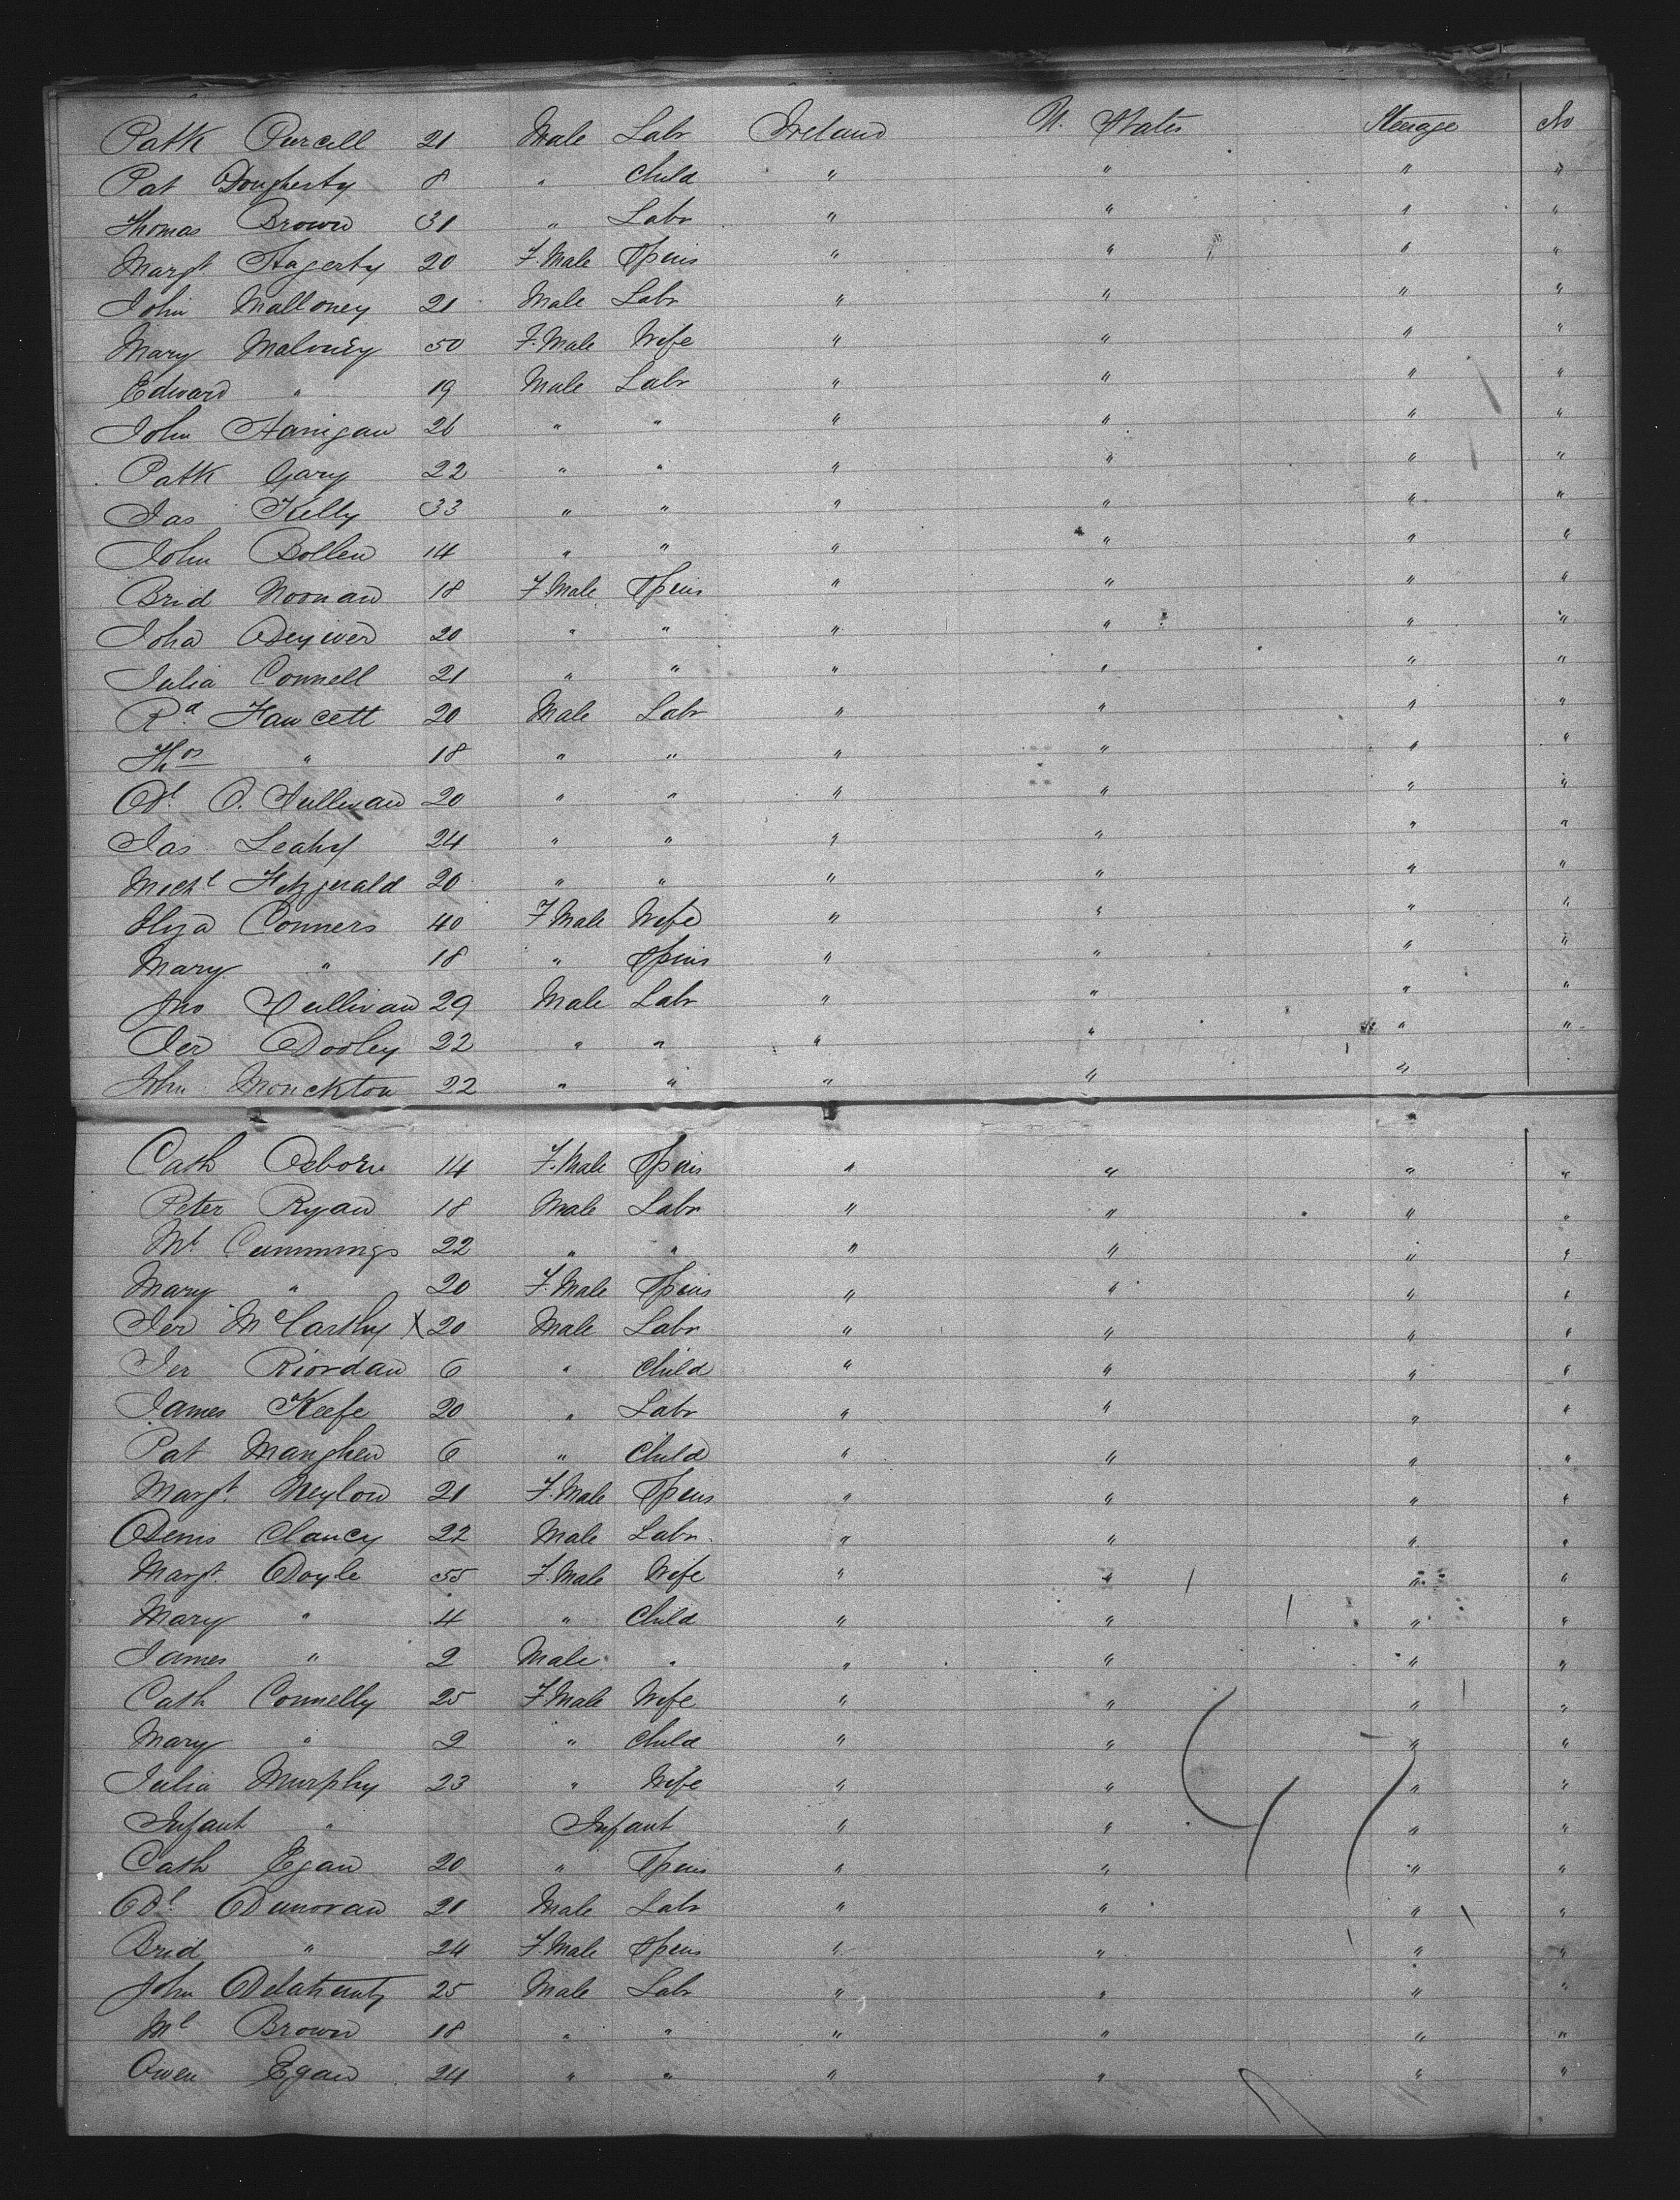 Patk Purcell 21 Male Labr Ireland U. States Steerage No
Pat Dougherty 8 " Child " " " "
Thomas Brown 31 " Labr " " " "
Margt Hagerty 20 F.Male Spins " " " "
John Malloney 21 Male Labr " " " "
Mary Maloney 50 F.Male Wife " " " "
Edward " 19 Male Labr " " " "
John Hanigan 26 " " " " " "
Patk Gary 22 " " " " " "
Jas Kelly 33 " " " " " "
John Bollen 14 " " " " " "
Brid Noonan 18 F.Male Spins " " " "
Joha 20 " " " " " "
Julia Connell 21 " " " " " "
Rd Fawcett 20 Male Labr " " " "
Thos " 18 " " " " " "
Dl O. Sullivan 20 " " " " " "
Jas Leahy 24 " " " " " "
Michl Fitzgerald 20 " " " " " "
Eliza Conners 40 F.Male Wife " " " "
Mary " 18 " Spins " " " "
Jno Sullivan 29 Male Labr " " " "
Jer Dooley 22 " " " " " "
John Monckton 22 " " " " "
Cath Osborn 14 F.Male Spins " " " "
Peter Ryan 18 Male Labr " " " "
Ml Cummings 22 " " " " " "
Mary " 20 F.Male Spins " " " "
Jer McCarthy X 20 Male Labr " " " "
Jer Riordan 6 " Child " " " "
James Keefe 20 " Labr " " " "
Pat Manghen 6 " Child " " " "
Margt. Neylon 21 F.Male Spins " " " "
Denis Clancy 22 Male Labr " " " "
Margt. Doyle 55 F.Male Wife " " " "
Mary " 4 " Child " " " "
James " 2 Male " " " " "
Cath Connelly 25 F.Male Wife " " " "
Mary " 2 " Child " " " "
Julia Murphy 23 " Wife " " " "
Infant " Infant " " " "
Cath Egan 20 " Spins " " " "
Dl Dunovan 21 Male Labr " " " "
Brid " 24 F.Male Spins " " " "
John Delahunty 25 Male Labr " " " "
Ml Brown 18 " " " " " "
Owen Egan 24 " " " " " "